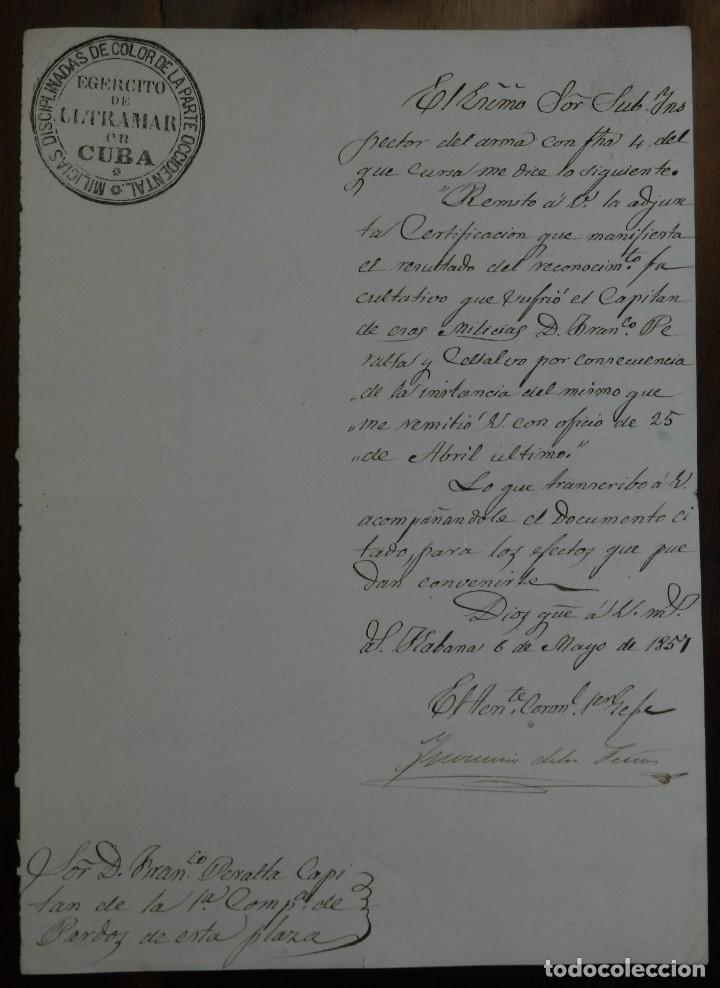 MILICIAS DISCIPLINADAS DE COLOR DE LA PARTE OCCIDENTAL.
EGERCITO
DE
ULTRAMAR
en
CUBA
El Exc̃mo Sor̃ Sub. Ins
pector del arma con fha 4 del
que cursa me dice lo siguiente.
"Remito á V. la adjun
ta Certificacion que manifiesta
el resultado del reconocim.to fa
cultativo que sufrió el Capitan
de esas Milicias D. Fran.co Pe
ralta y por consecuencia
„de la instancia del mismo que
„me remitió V. con oficio de 25
„de Abril ultimo."
Lo que transcribo á V.
acompañandole el Documento ci
tado, para los efectos que pue
dan convenirle
Dios gũe á V. m.s
a.s Habana 6 de Mayo de 1857
El Ten.te Coron.l 1er Gefe
Sor̃ D. Fran.co Peralta Capi
tan de la 1.a Comp.a de
Pardos de esta plaza
todocoleccion